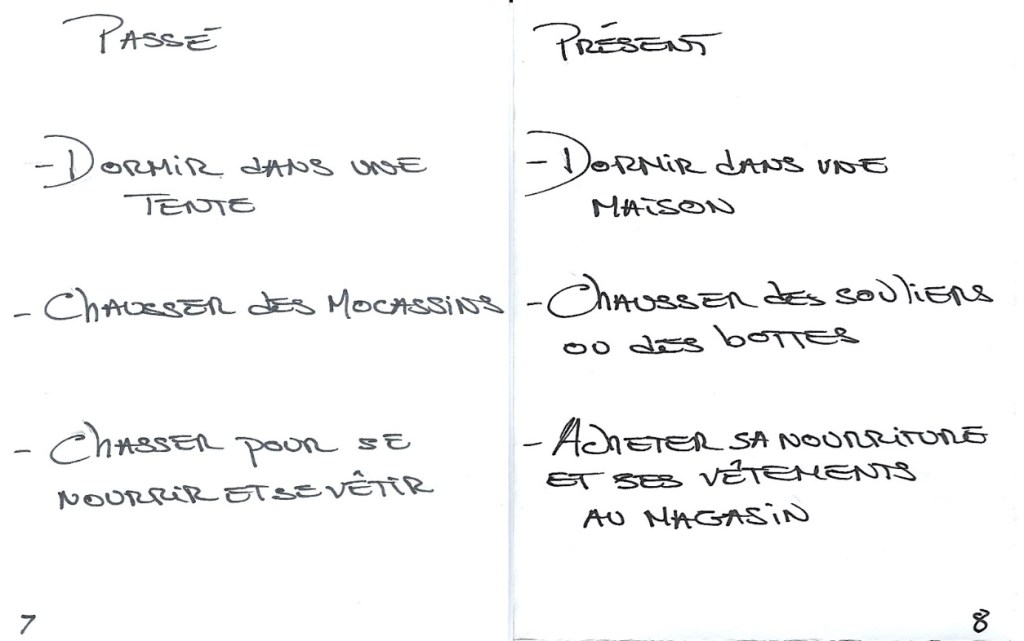 PASSÉ
- DORMIR DANS UNE
TENTE
- CHAUSSER DES MOCASSINS
- CHASSER POUR SE
NOURRIR ET SE VÊTIR
7
PRÉSENT
- DORMIR DANS UNE
MAISON
- CHAUSSER DES SOULIERS
OU DES BOTTES
- ACHETER SA NOURRITURE
ET SES VÊTEMENTS
AU MAGASIN
8